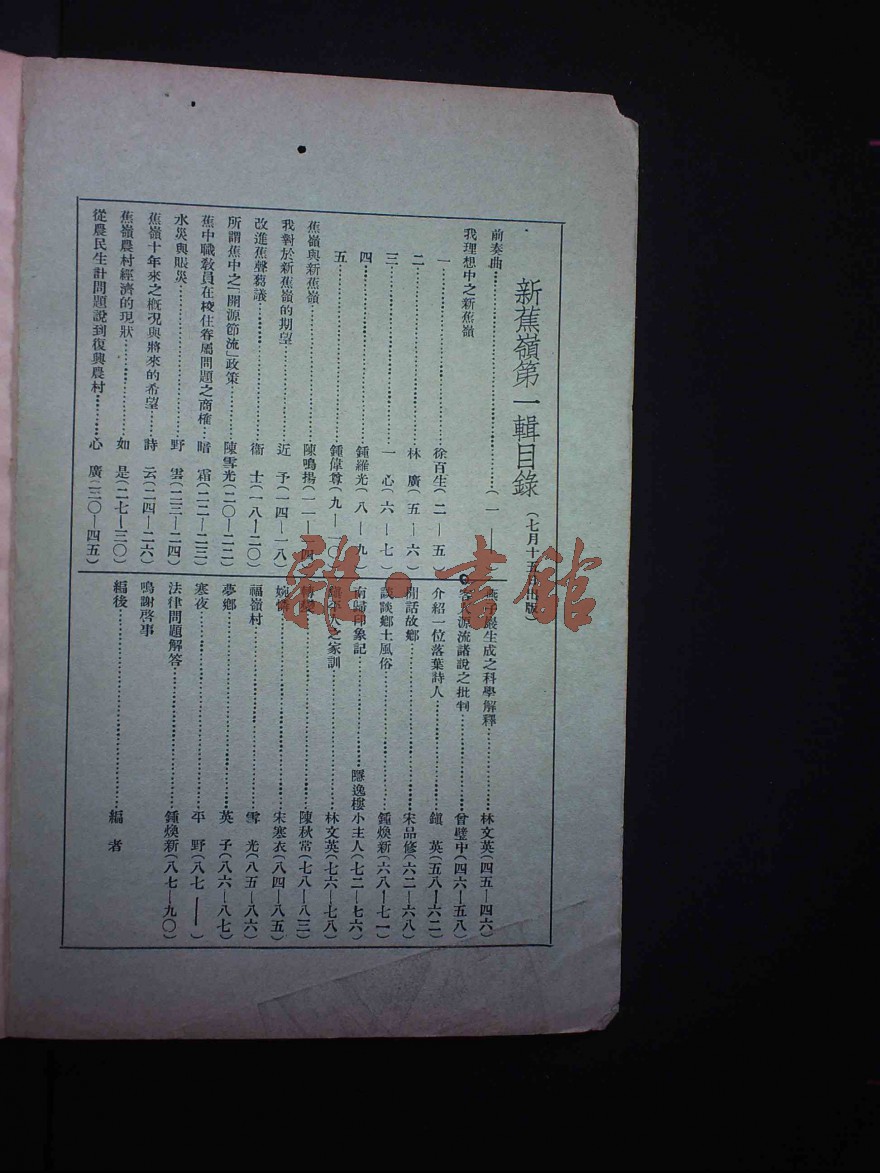 新蕉嶺第一輯目錄（七月十五日出版）
前奏曲……（一—
我理想中之新蕉嶺
一……徐百生（二—五）
二……林　廣（五—六）
三……一　心（六—七）
四……鍾羅光（八—九）
五……鍾偉尊（九—一〇）
蕉嶺與新蕉嶺……陳鳴揚（一一—一四）
我對於新蕉嶺的期望……近　予（一四—一八）
改進蕉聲芻議……衛　士（一八—二〇）
所謂蕉中之「開源節流」政策……陳雪光（二〇—二二）
蕉中職敎員在校住眷屬問題之商榷…暗　霜（二二—二三）
水災與賬災……野　雲（二三—二四）
蕉嶺十年來之槪况與將來的希望…詩　云（二四—二六）
蕉嶺農村經濟的現狀……如　是（二七—三〇）
從農民生計問題說到復興農村……心　廣（三〇—四五）
子巖生成之科學解釋……林文英（四五—四六）
客　源流諸說之批判……曾璧中（四六—五八）
介紹一位落葉詩人……鎭　英（五八—六二）
閒話故鄉……宋品修（六二—六八）
談談鄉土風俗……鍾煥新（六八—七一）
南歸印象記……隱逸樓小主人（七二—七六）
平人之家訓……林文英（七六—七八）
……陳秋常（七八—八三）
婉……宋寒衣（八四—八五）
福嶺村……雪　光（八五—八六）
夢鄉……英　子（八六—八七）
寒夜……平　野（八七——）
法律問題解答……鍾煥新（八七—九〇）
鳴謝啓事
編後……編　者
雜·書館